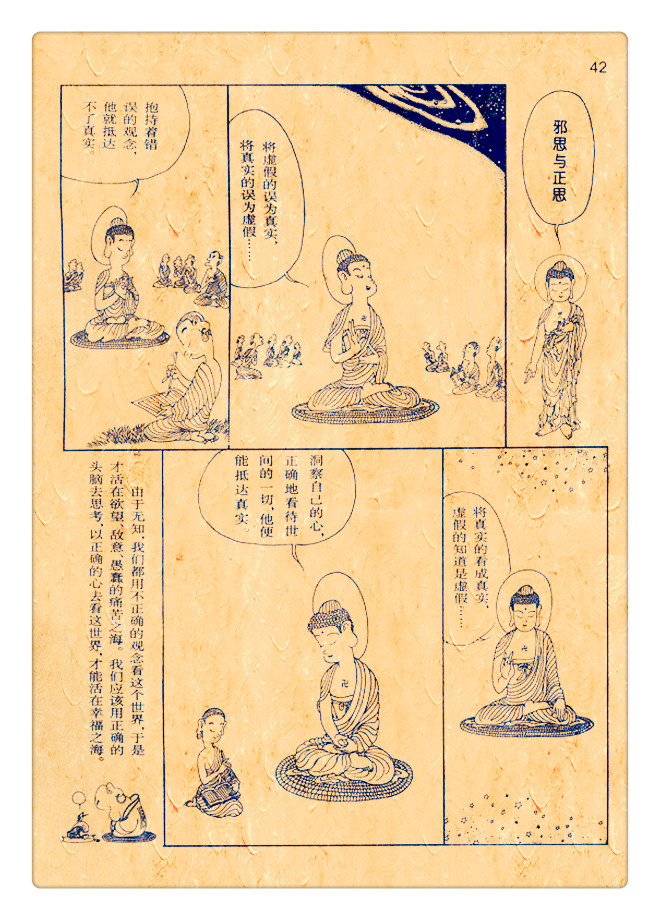 42
邪思与正思
将虚假的误为真实，
将真实的误为虚假……
抱持着错
误的观念，
他就抵达
不了真实。
将真实的看成真实，
虚假的知道是虚假……
洞察自己的心，
正确地看待世
间的一切，他便
能抵达真实。
由于无知，我们都用不正确的观念看这个世界，于是
才活在欲望、敌意、愚蠢的痛苦之海。我们应该用正确的
头脑去思考，以正确的心去看这世界，才能活在幸福之海。